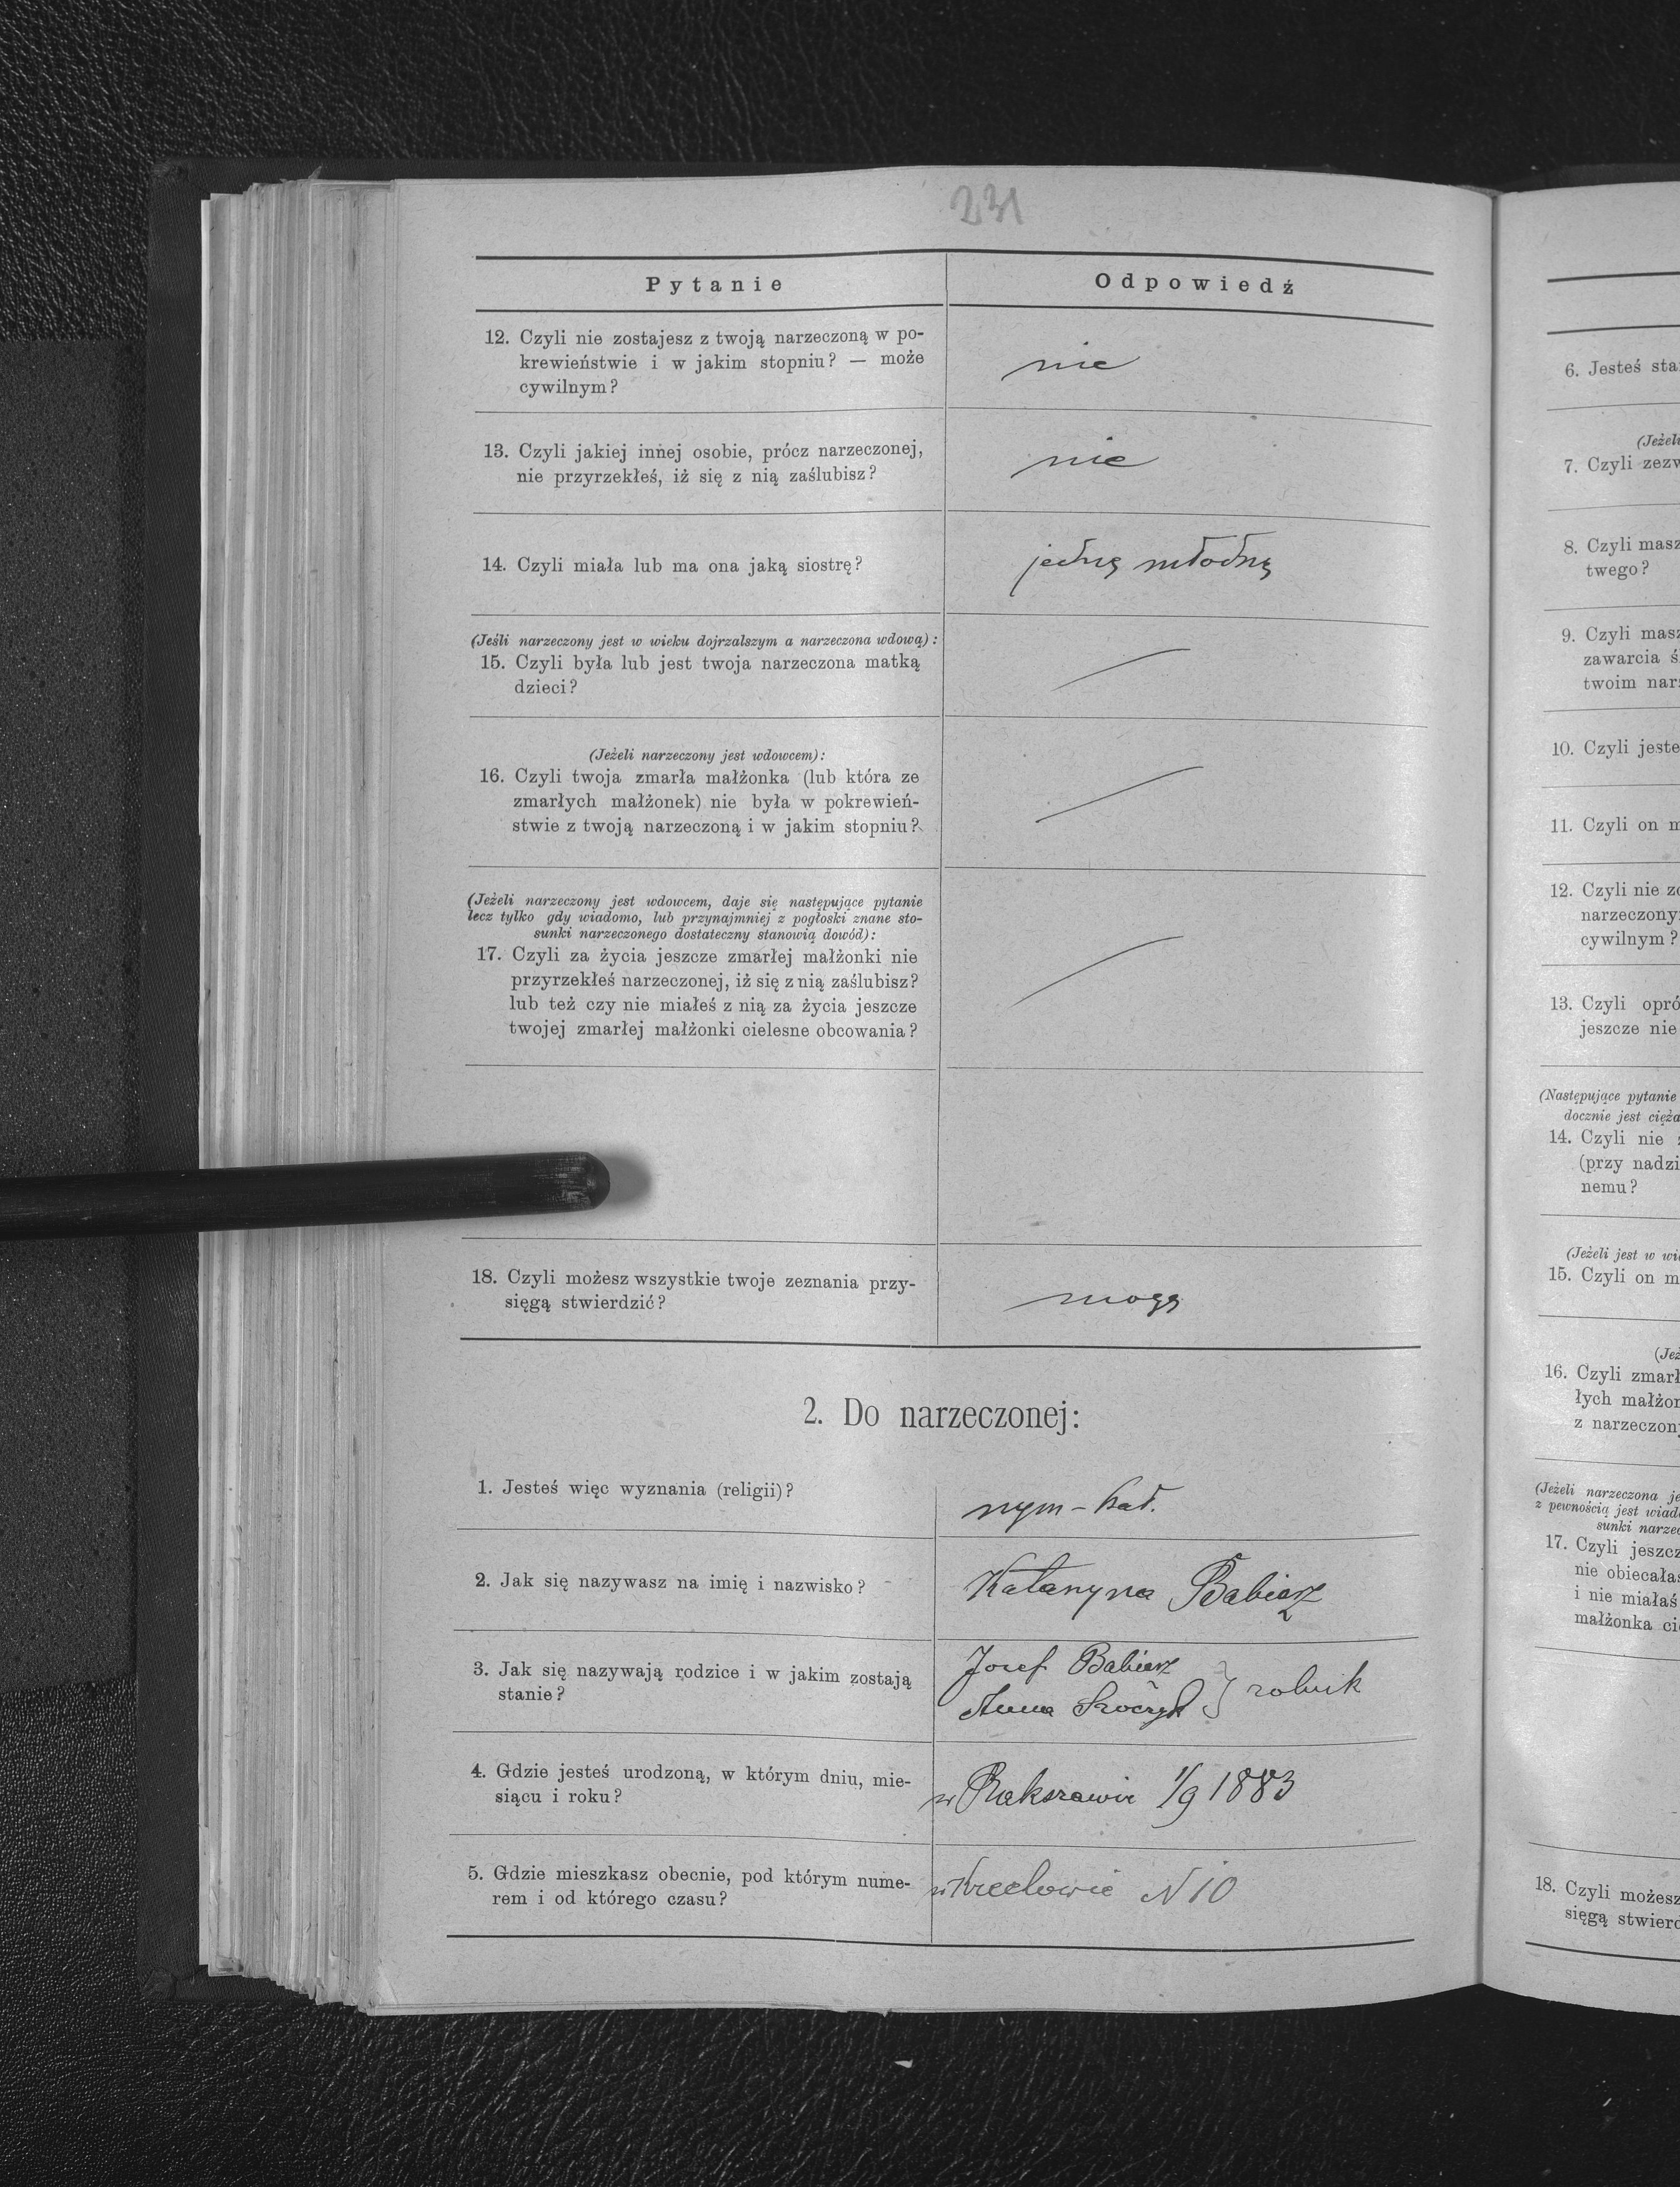 231
Pytanie
Odpowiedź
12. Czyli nie zostajesz z twoją narzeczoną w po-
krewieństwie i w jakim stopniu? — może
cywilnym?
nie
13. Czyli jakiej innej osobie, prócz narzeczonej,
nie przyrzekłeś, iż się z nią zaślubisz?
nie
14. Czyli miała lub ma ona jaką siostrę?
jedną młodną
(Jeśli narzeczony jest w wieku dojrzalszym a narzeczona wdową):
15. Czyli była lub jest twoja narzeczona matką
dzieci?
(Jeżeli narzeczony jest wdowcem):
16. Czyli twoja zmarła małżonka (lub która ze
zmarłych małżonek) nie była w pokrewień-
stwie z twoją narzeczoną i w jakim stopniu?
(Jeżeli narzeczony jest wdowcem, daje się następujące pytanie
lecz tylko gdy wiadomo, lub przynajmniej z pogłoski znane sto-
sunki narzeczonego dostateczny stanowią dowód):
17. Czyli za życia jeszcze zmarłej małżonki nie
przyrzekłeś narzeczonej, iż się z nią zaślubisz?
lub też czy nie miałeś z nią za życia jeszcze
twojej zmarłej małżonki cielesne obcowania?
18. Czyli możesz wszystkie twoje zeznania przy-
sięgą stwierdzić?
mogę
2. Do narzeczonej:
1. Jesteś więc wyznania (religii)?
rzym-kat.
2. Jak się nazywasz na imię i nazwisko?
Katarzyna Babiarz
3. Jak się nazywają rodzice i w jakim zostają
stanie?
Józef Babiarz
Anna
rolnik
4. Gdzie jesteś urodzoną, w którym dniu, mie-
siącu i roku?
w Rakszawie 1/9 1883
5. Gdzie mieszkasz obecnie, pod którym nume-
rem i od którego czasu?
w N 10
6. Jesteś sta
(Jeżeli
7. Czyli zezw
8. Czyli masz
twego?
9. Czyli masz
zawarcia ś
twoim narz
10. Czyli jeste
11. Czyli on m
12. Czyli nie zo
narzeczony
cywilnym?
13. Czyli opró
jeszcze nie
(Następujące pytanie
docznie jest cięża
14. Czyli nie
(przy nadzi
nemu?
(Jeżeli jest w wi
15. Czyli on m
(Jeż
16. Czyli zmarł
łych małżon
z narzeczon
(Jeżeli narzeczona je
z pewnością jest wiad
sunki narze
17. Czyli jeszcz
nie obiecała
i nie miałaś
małżonka ci
18. Czyli możesz
sięgą stwierd